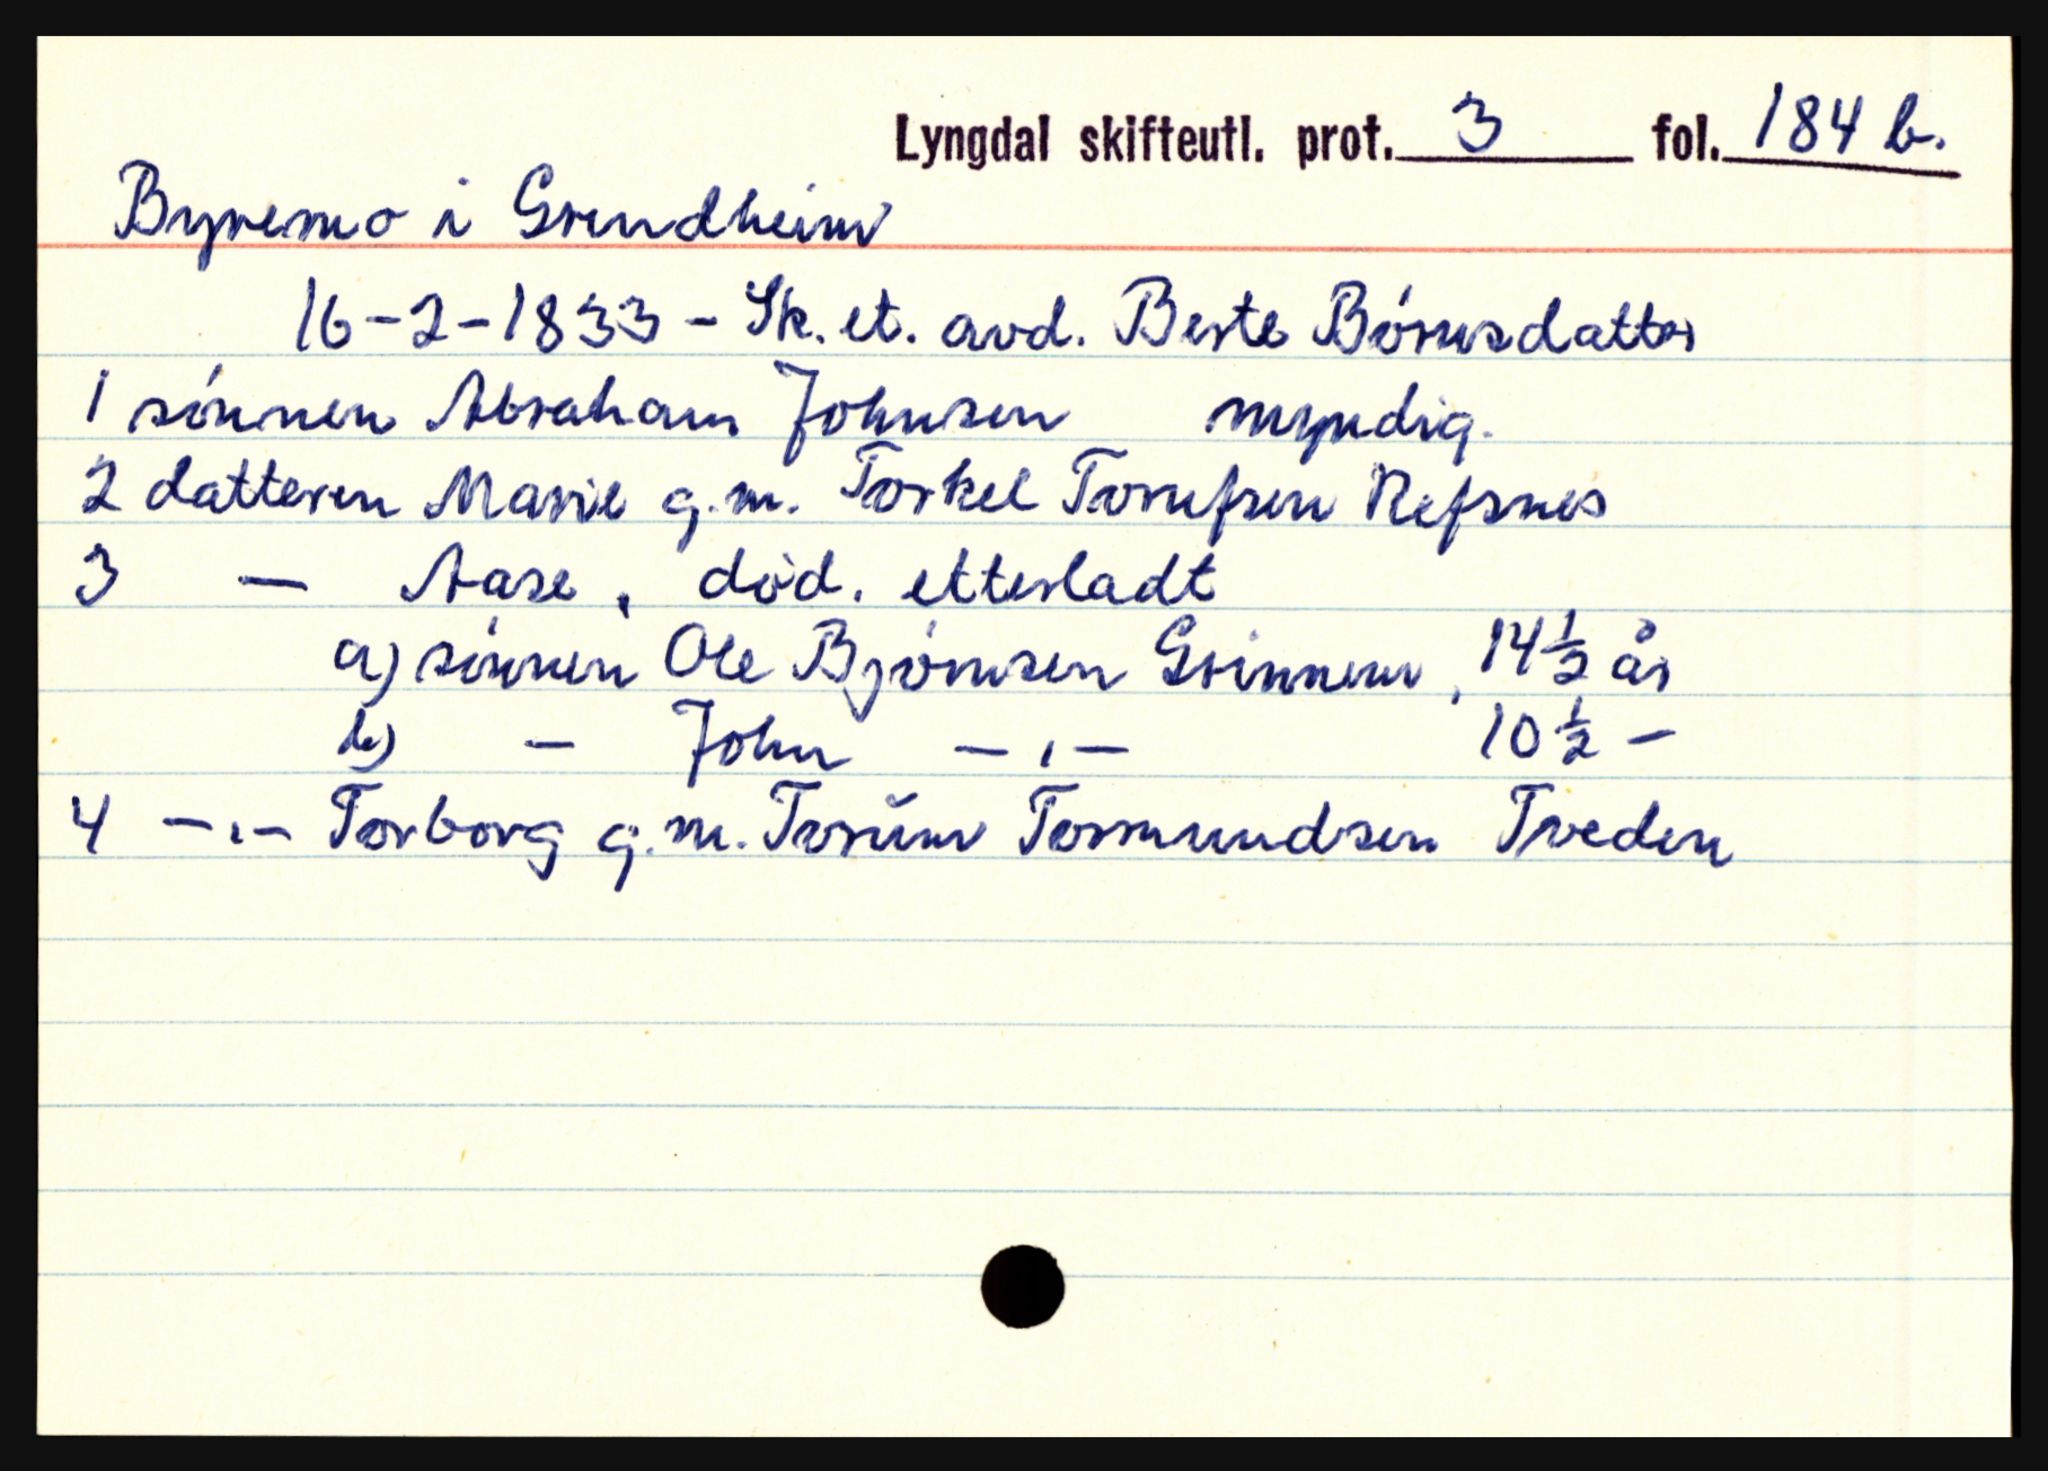 Lyngdal skifteutl. prot. 3 fol. 184 b.
Byremo i Grendheim
16-2-1833 - Sk. et. avd. Berte Bórusdatter
1 sónnen Abraham Johnsen myndig.
2 datteren Marie g.m. Torkel Torufsen Refsnes
3 — Aase, død. etterladt
a) sónnen Ole Bjórnsen Grinnem, 14½ år
b) — John — „ — 10½ —
4 — „ — Torborg g.m. Torŭm Tormundsen Tveden